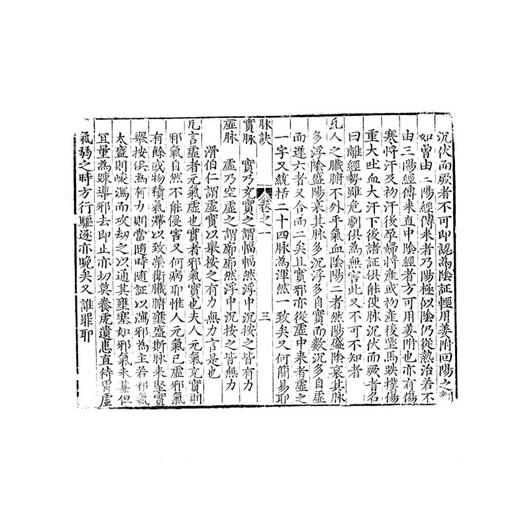 沉伏而厥者不可即認為陰証輕用姜附回陽之劑
如曾由三陽經傳來者乃陽極以陰仍從熱治若不
由三陽經傳來直中陰經者方可用姜附也亦有傷
寒將汗及初汗後孕婦將產或初產後墮馬跌撲傷
重大吐血大汗下後諸証俱能使脉沉伏而厥者名
曰離經勢雖危劇俱為無害此又不可不知者
凡人之臟腑不外乎氣血陰陽二者然陽盛陰衰其脉
多浮實陰盛陽衰其脉多沉浮多自實而數沉多自虛
而遲六者又合而二矣且實邪亦從虛中來者虛之
一字又統括二十四脉為渾然一致矣又何簡易耶
脉訣 卷之一 三
實脉 實乃充實之謂愊愊然浮中沉按之皆有力
虛脉 虛乃空虛之謂廓廓然浮中沉按之皆無力
滑伯仁謂虛實以舉按之有力無力言是也
凡言虛者元氣虛也實者邪氣實也夫人元氣充實則
邪氣自然不能侵害又何病耶惟人元氣已虛邪氣
有餘或物積氣滯以致榮衛臟腑壅盛斯脉來堅實
舉按俱為有力則當隨時隨証以瀉邪為主若邪氣
太盛則峻瀉而攻刼之以通其壅塞如邪氣未甚但
宜量為疎導邪去即止亦切莫養虎遺患直待胃虛
氣弱之時方行驅逐亦晚矣又誰罪耶